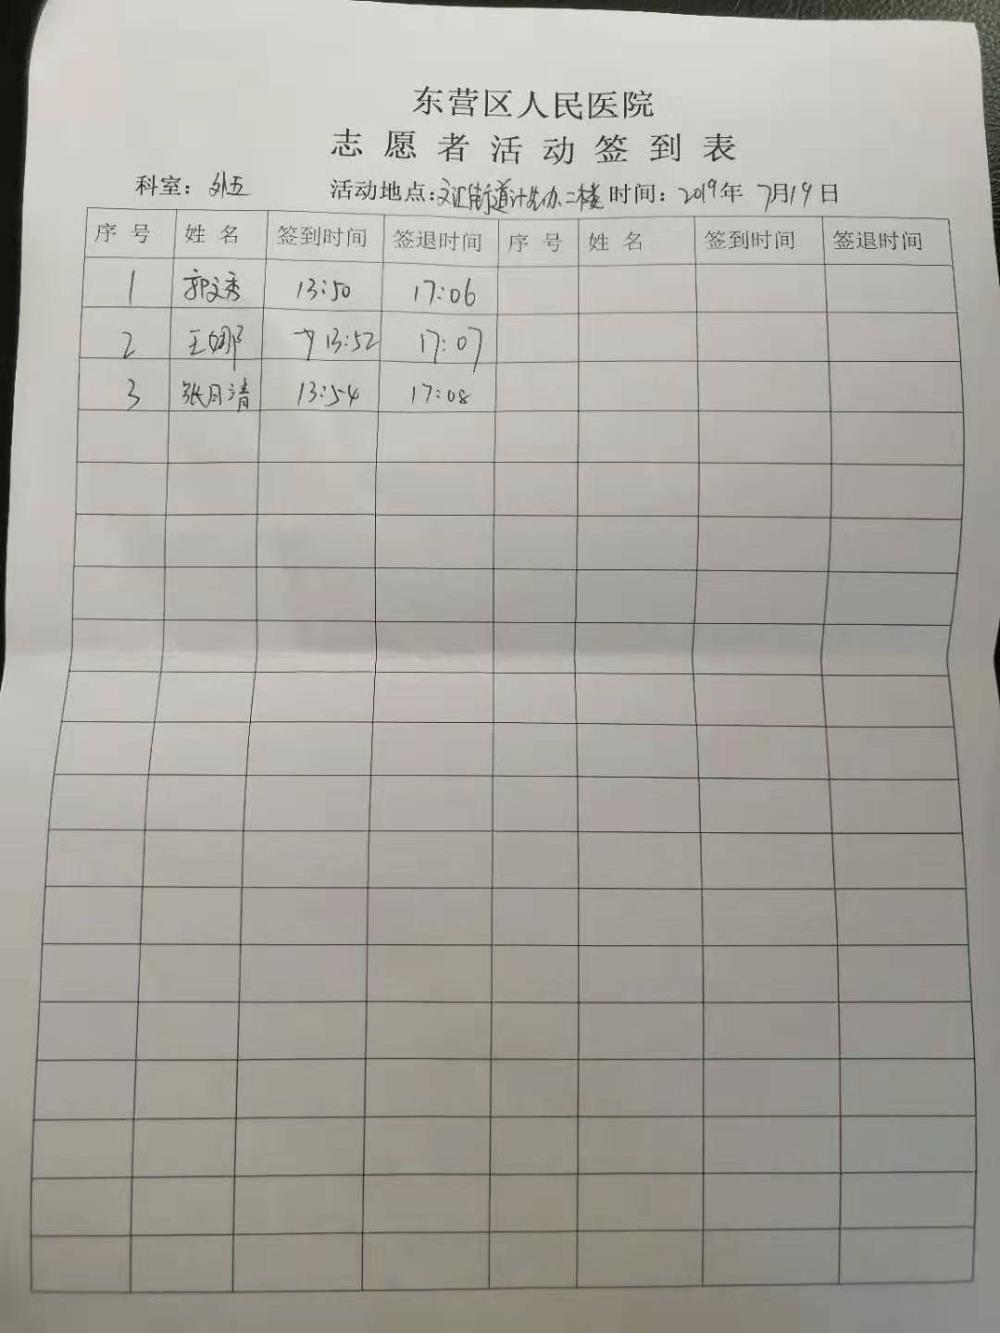 东营区人民医院
志愿者活动签到表
科室：外五 活动地点：文汇街道计生办二楼 时间：2019年 7月19日
序号 姓名 签到时间 签退时间 序号 姓名 签到时间 签退时间
1 郭文秀 13:50 17:06
2 王娜 13:52 17:07
3 张月清 13:54 17:08